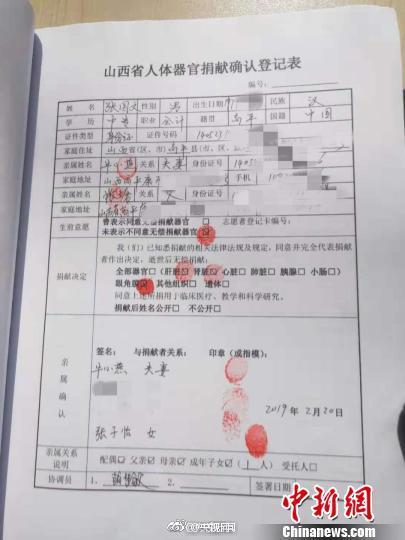 山西省人体器官捐献确认登记表
编号：
姓 名 张国文 性别 男 出生日期 民族 汉
学 历 中专 职业 会计 籍贯 高平 国籍 中国
证件类型 身份证 证件号码 140523
家庭住址 山西省(区、市) 高平 县(市、区)
亲属姓名 牛小燕 关系 夫妻 身份证号
家庭地址 手机
亲属姓名 关系 父 身份证号
家庭地址
生前意愿
曾表示同意无偿捐献器官 □ 志愿者登记卡编号：
未表示不同意无偿捐献器官
捐献决定
我（们）已知悉捐献的相关法律法规及规定，同意并完全代表捐献
者作出决定，逝世后无偿捐献：
全部器官□（肝脏 肾脏 心脏□ 肺脏□ 胰腺□ 小肠□）
眼角膜 其他组织□ 遗体□
同意上述所捐用于临床医疗、教学和科学研究。
捐献后姓名公开□ 不公开□
亲属确认
签名： 与捐献者关系： 印章（或指模）：
牛小燕 夫妻
2019年2月20日
张子怡 女
亲属关系说明
配偶☑ 父亲☑ 母亲☑ 成年子女☑（1人） 受托人□
协调员 1. 2. 签署日期
@央视网
中新网
Chinanews.com